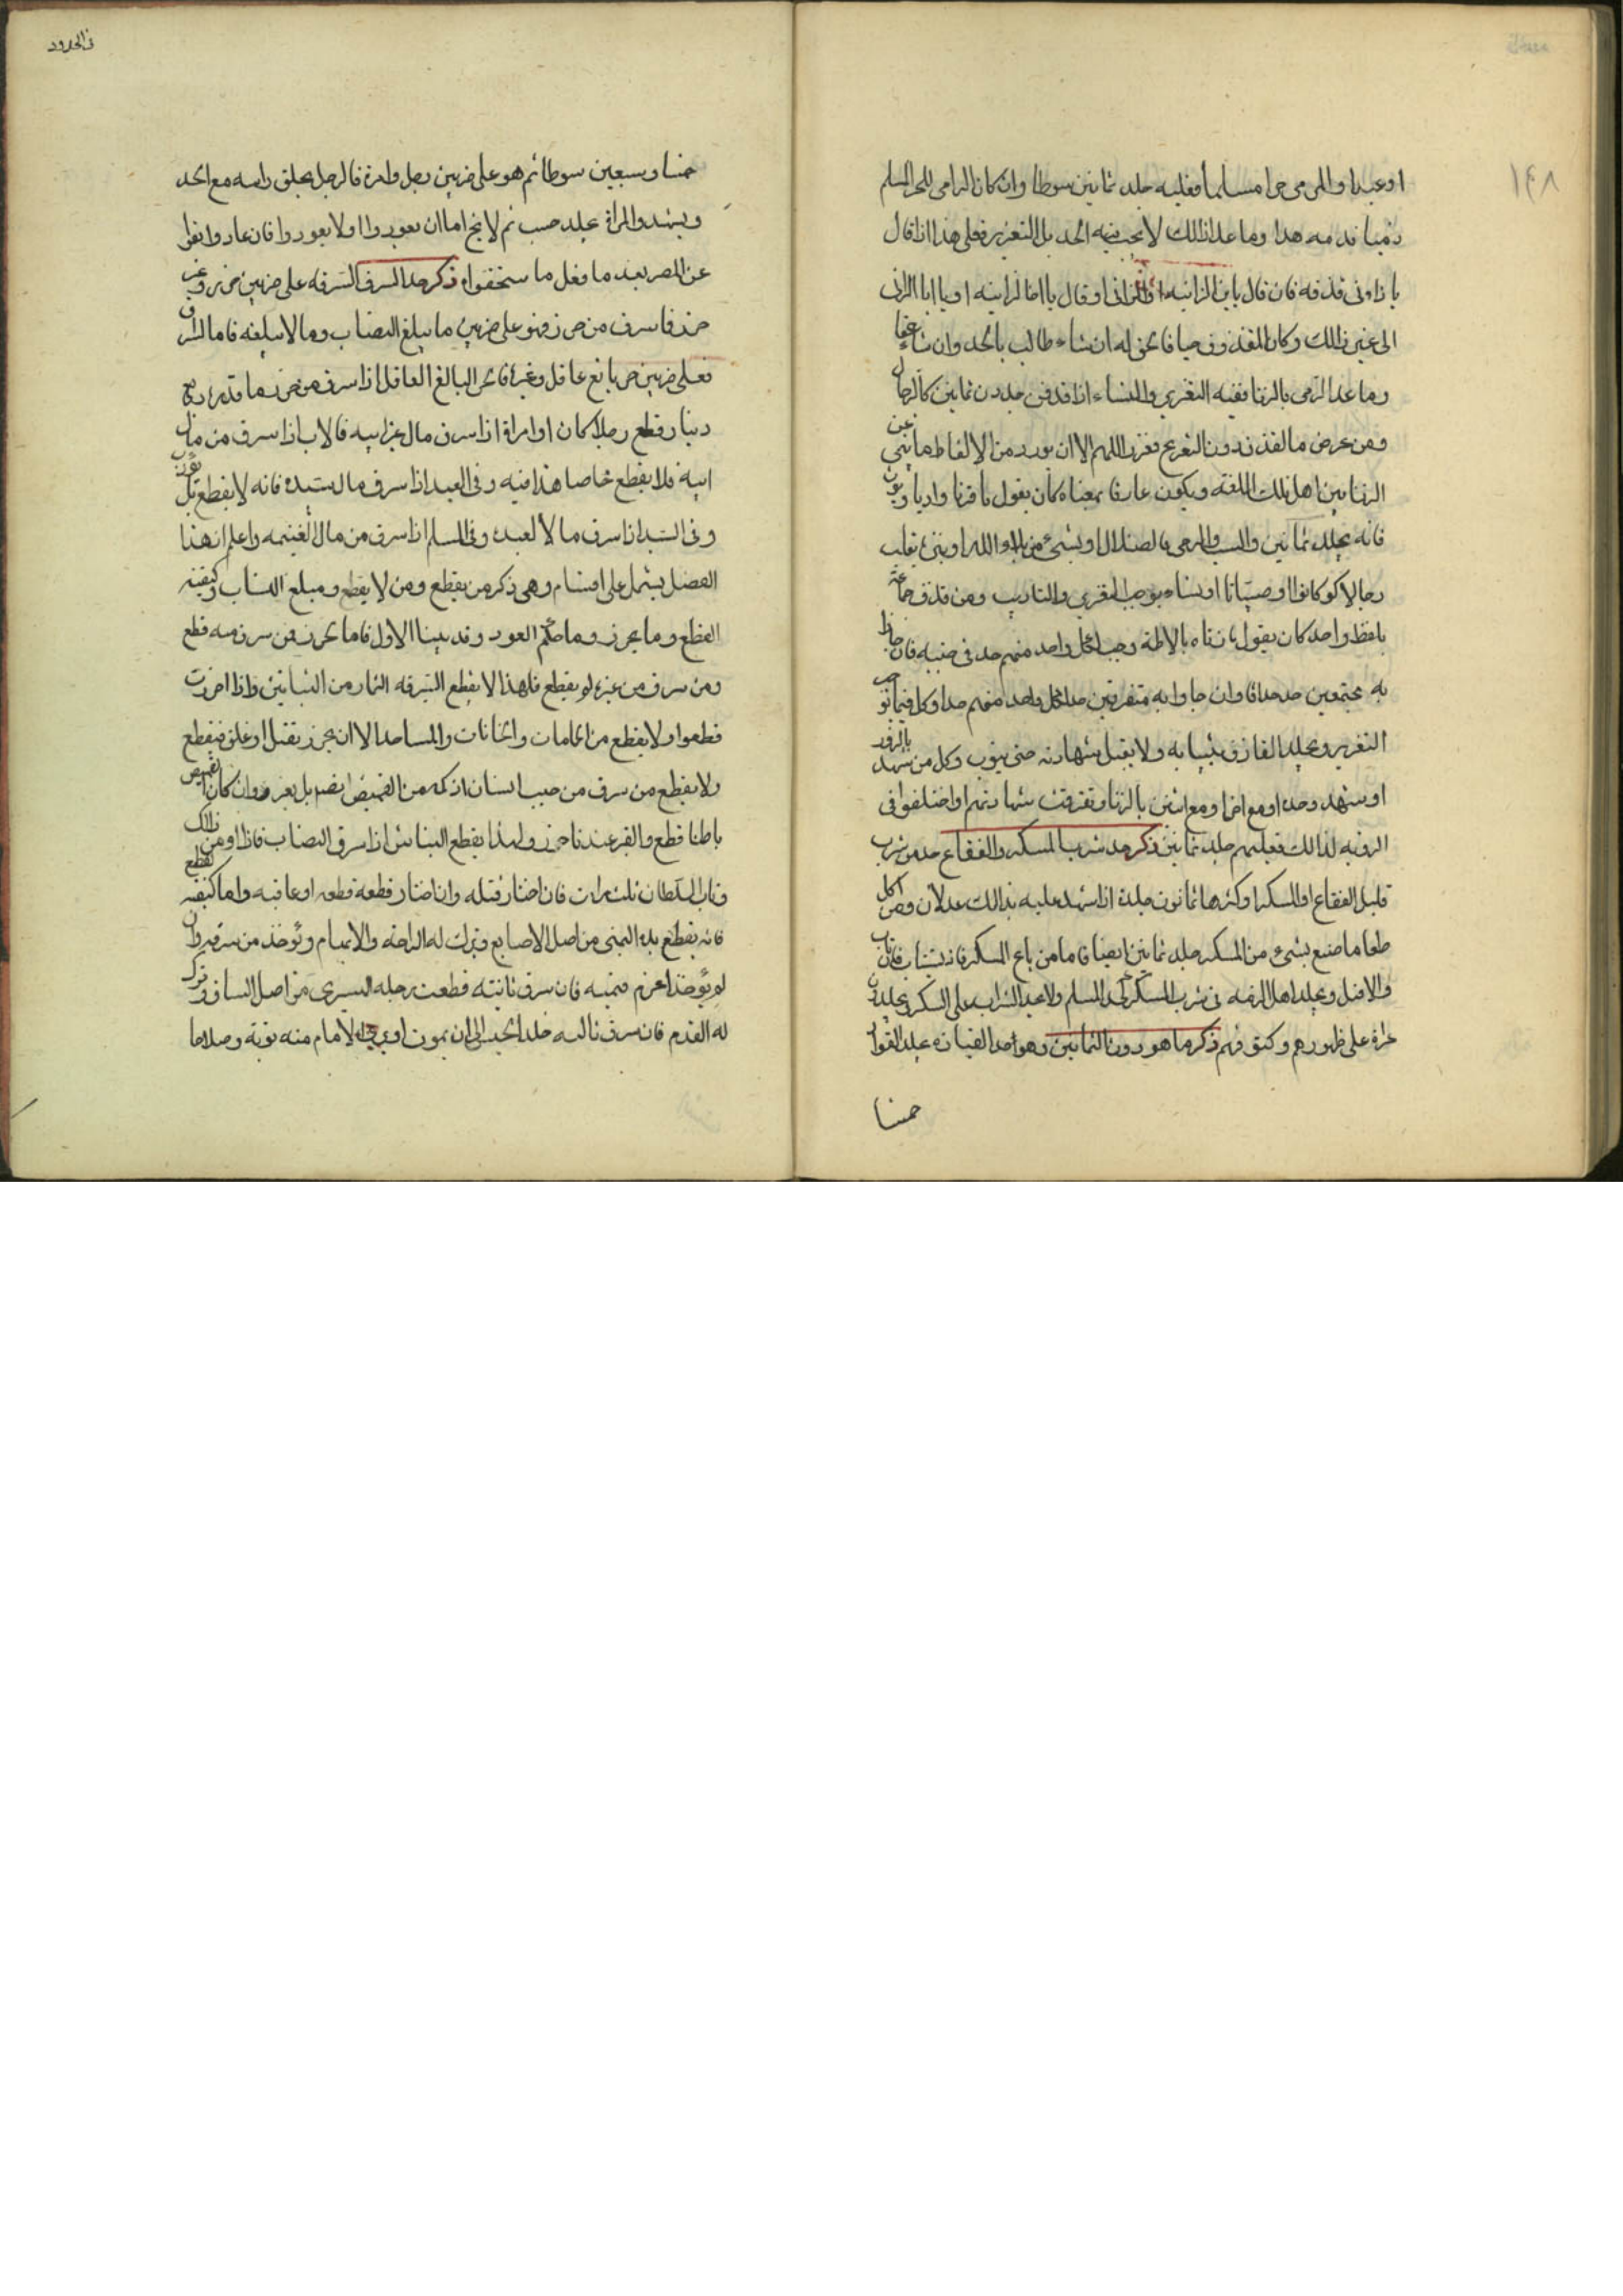 ١٤٨
او عبدا والمرمى حرا مسلما فعليه جلد ثمانين سوطا وان كان الرامى للحر المسلم
ذميا قد مه هدا وما عدا ذالك لا يجب فيه الحد بل التعزير فعلى هذا اذا قال
يا زاونى قذفه فان قال يا بن الزانيه او الزانى او قال يا اخا الزانيه او يا ابا الزانى
الى غير ذالك وكان المقذوف حيا فالحق له ان شاء طالب بالحد وان شاء عفا
وما عدا الرمى بالزنا ففيه التعزير والنساء اذا قذفن جلدن ثمانين كالرجال
ومن عرض مالقذف دون التصريح فعزر اللهم الا ان يورد من الالفاظ ما ينبئ عن
الزنا بين اهل تلك اللغة ويكون عارفا بمعناه كان يقول يا قرنا وا ديا ويون
فانه يجلد ثمانين والسب والرمى بالضلال او بشئ من بلاء الله او بنى يقلب
رجالا كو كانوا او صبيانا او نساء يوجب التعزير والتاديب ومن قذف جماعة
بلفظ واحد كان يقول يا زناه يا لاطة وجب لكل واحد منهم حد فى جنبه فان جاؤا
به مجتمعين حد حدا وان جاوا به متفرقين حد لكل واحد منهم حدا وكل فيما يوجب
التعزير ويجلد القاذف بثيابه ولا يقبل شهادته حتى يتوب وكل من شهد بالزور
او شهد وحده او مع اخر او مع اثنين بالزنا وتفرقت شهادتهم او اختلفوا فى
الرؤيه لذالك فعليهم جلد ثمانين ذكر حد شرب المسكر والفقاع حد من شرب
قليل الفقاع او المسكر او كثرها ثمانون جلدة اذا شهد عليه بذالك عدلان ومن اكل
طعاما صنع بشئ من المسكر جلد ثمانين ايضا فاما من باع المسكر فانه يستتاب فان تاب
والا قتل ويجلد اهل الذمه فى شرب المسكر كحد المسلم ولا يحد الشراب على السكر ويجلدون
عراة على ظهورهم وكتوفهم ذكر ما هو دون الثمانين وهو حد القيادة يجلد القواد
خمسا
فى الحدود
خمسا وسبعين سوطا ثم هو على ضربين رجل وامرة فالرجل يحلق راسه مع الحد
ويشهد والمراة يجلد حسب ثم لا يخ اما ان يعودوا او لا يعودوا فان عادوا نفوا
عن المصر بعد ما فعل ما ستحقواه ذكر حد السرق السرقه على ضربين من حرز وغير
حرز فما سرق من حرز فهو على ضربين ما يبلغ النصاب وما لا يبلغه فاما السارق
فعلى ضربين حر بالغ عاقل وغيره فالحر البالغ العاقل اذا سرق من حرز ما قدره ربع
دينار قطع رجلا كان او امراة اذا سرق مال غير ابيه فالاب اذا سرق من مال
ابنه فلا يقطع خاصا هذا فيه وفى العبد اذا سرق مال سيده فانه لا يقطع بل يؤدب
وفى السيد اذا سرق مالا لعبده وفى المسلم اذا سرق من مال الغنيمه واعلم ان هذا
الفصل يشتمل على اقسام وهى ذكر من يقطع ومن لا يقطع ومبلغ النصاب وكيفيه
القطع وما يحرز وما حكم العود وقد بينا الاول فاما الحرز فمن سرق منه قطع
ومن سرق من غيره لم يقطع فلهذا لا يقطع السرقه الثمار من البساتين واذا احرزت
قطعوا ولا يقطع من الحمامات والخانات والمساجد الا ان يحرز بقفل او غلق فيقطع
ولا يقطع من سرق من جيب انسان او كمه من القميص بل يعزر وان كان القميص
باطنا قطع والقبر عندنا حرز ولهذا يقطع النباش اذا سرق النصاب فاذا ادمن ذالك
وفات السلطان ثلث مرات فان اختار قتله وان اختار قطعه قطعه او عاقبه واما كيفية القطع
فانه يقطع يده اليمنى من اصل الاصابع ويترك له الراحة والابهام وتؤخذ من سرقه وان
لم يؤخذ اغرم قيمته فان سرق ثانيته قطعت رجله اليسرى من اصل الساق وترك
له القدم فان سرق ثالثه خلد الحبس الى ان يموت او يرى الامام منه توبة وصلاحا